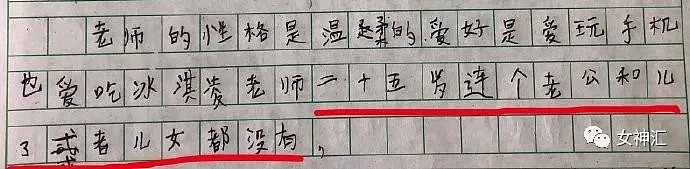 老师的性格是温柔的爱好是爱玩手机
也爱吃冰淇凌老师二十五岁连个老公和儿
了或者儿女都没有，
女神汇